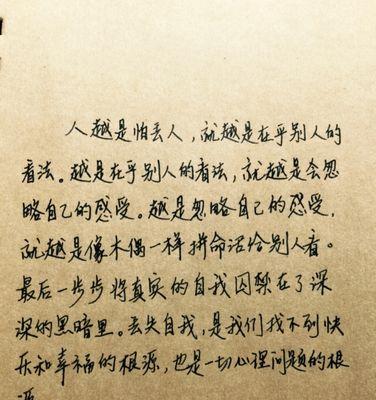 人越是怕丢人，就越是在乎别人的
看法。越是在乎别人的看法，就越是会忽
略自己的感受。越是忽略自己的感受，
就越是像木偶一样拼命活给别人看。
最后一步步将真实的自我囚禁在了深
深的黑暗里。丢失自我，是我们找不到快
乐和幸福的根源，也是一切心理问题的根
源